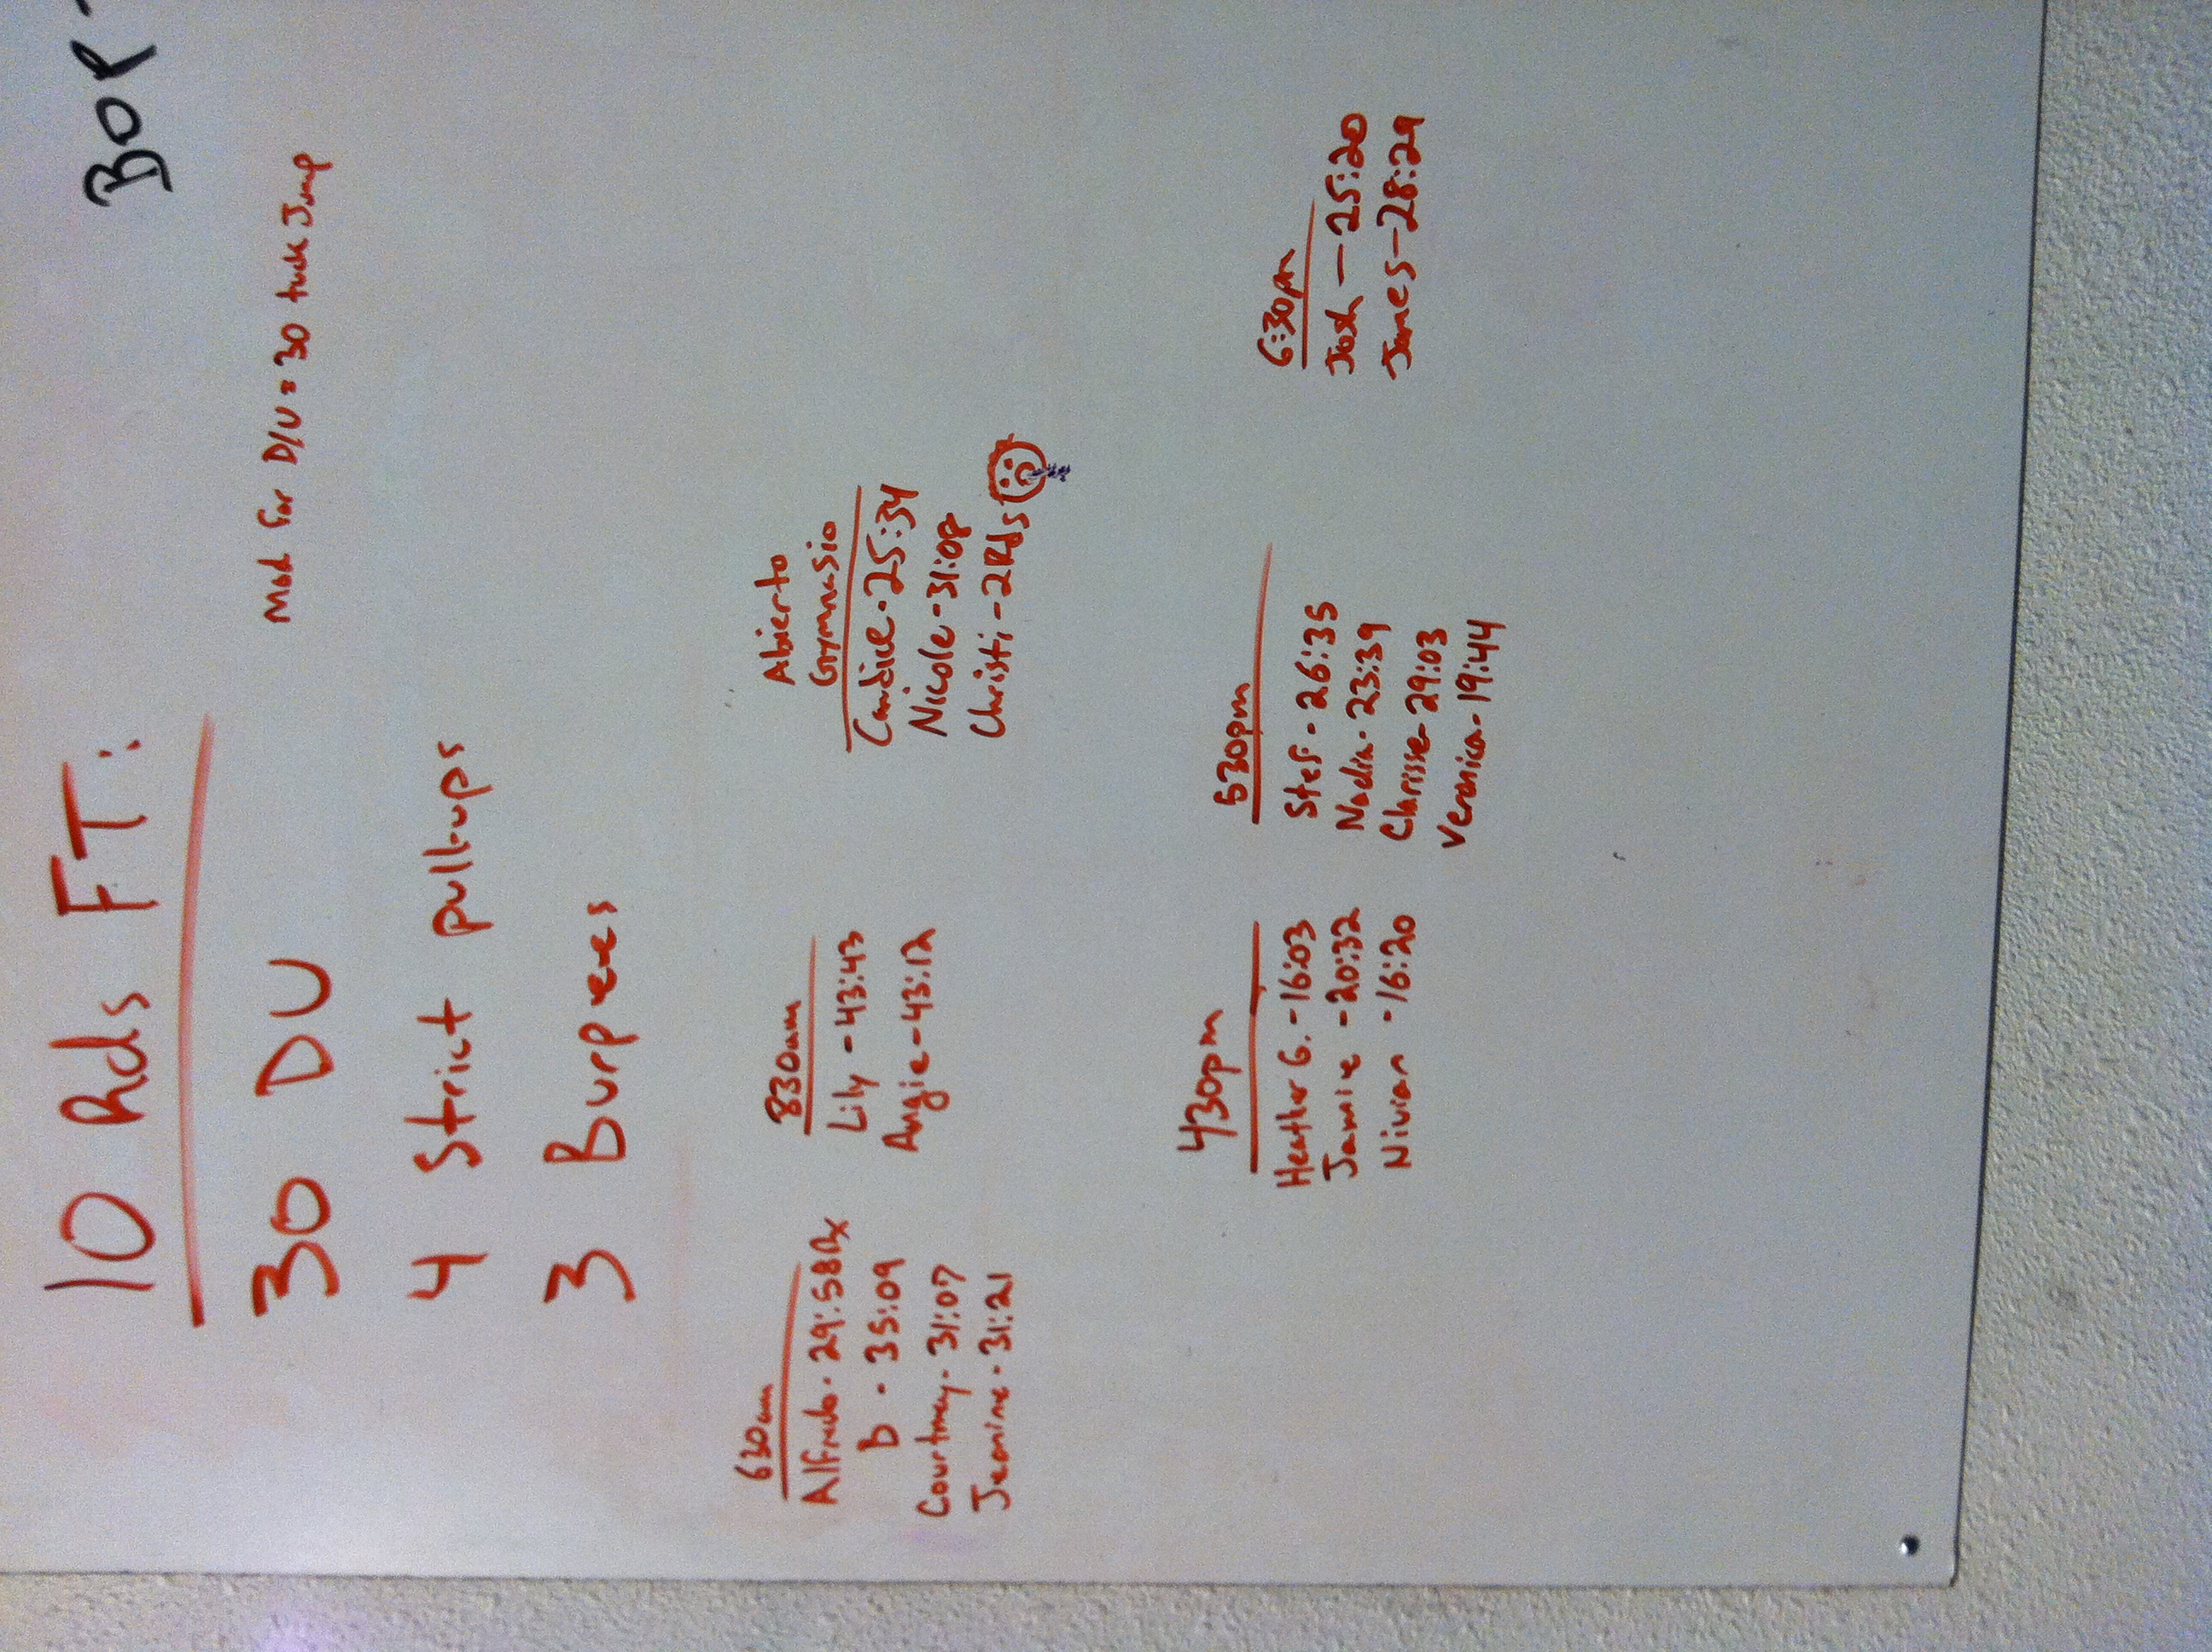 10 Rds FT:
30 DU
Mod For D/U = 30 tuck Jump
4 Strict pull-ups
3 Burpees
BOR
630am
Alfredo - 29:58 Rx
D - 35:09
Courtney - 31:07
Jeanine - 31:21
830am
Lily - 43:43
Angie - 43:12
Abierto
Gymnasio
Candice - 25:34
Nicole - 31:08
Christi - 2 Rds
430pm
Heather G. - 16:03
Jamie - 20:32
Nivian - 16:20
530pm
Stef - 26:35
Nadia - 23:39
Charisse - 29:03
Veronica - 19:44
6:30pm
Josh - 25:20
James - 28:29